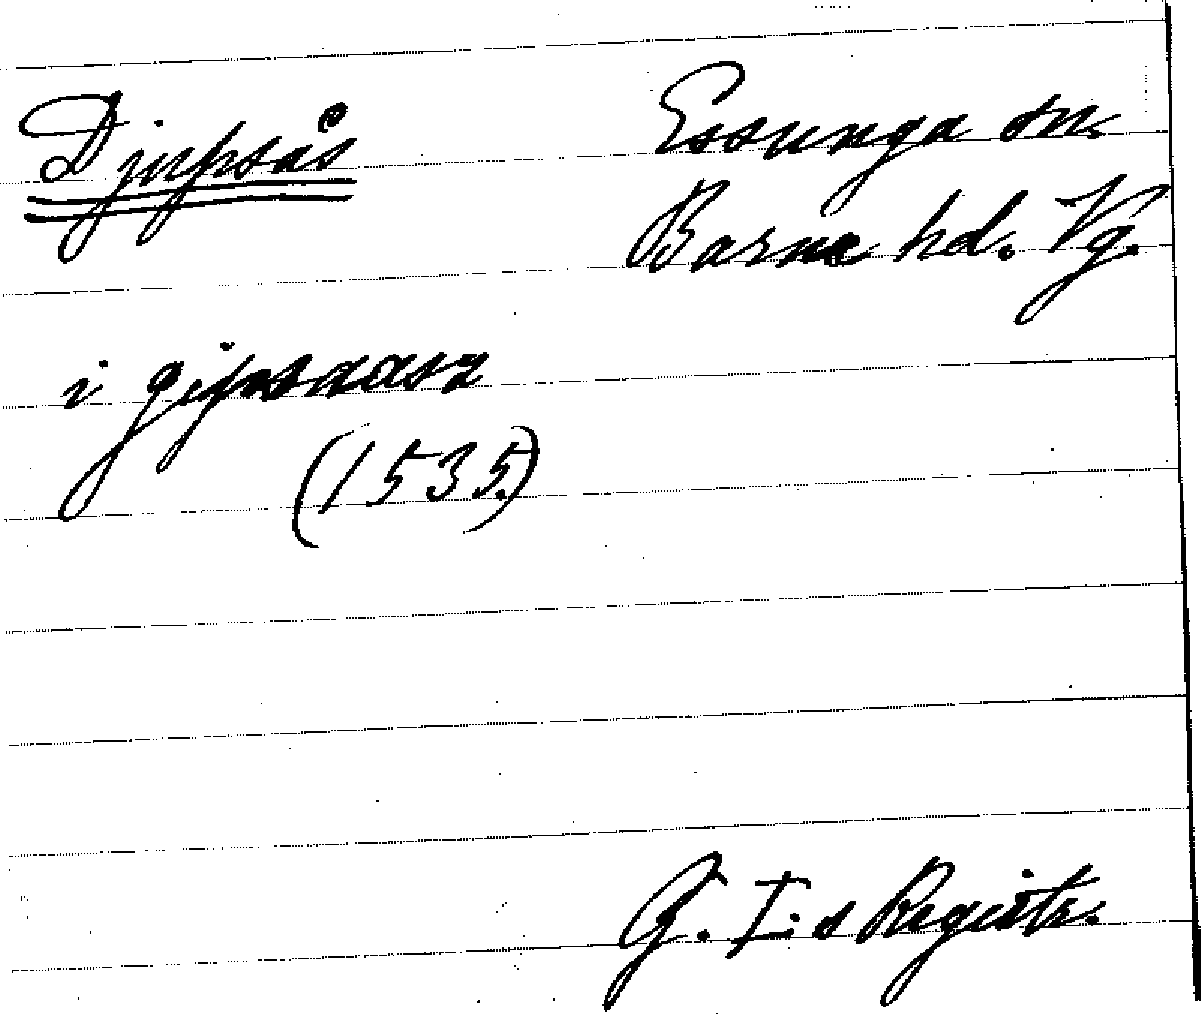 Djupsås
Essunga sn.
Barne hd. Vg.
i gipsaasz
(1535)
G. I:s Registr.